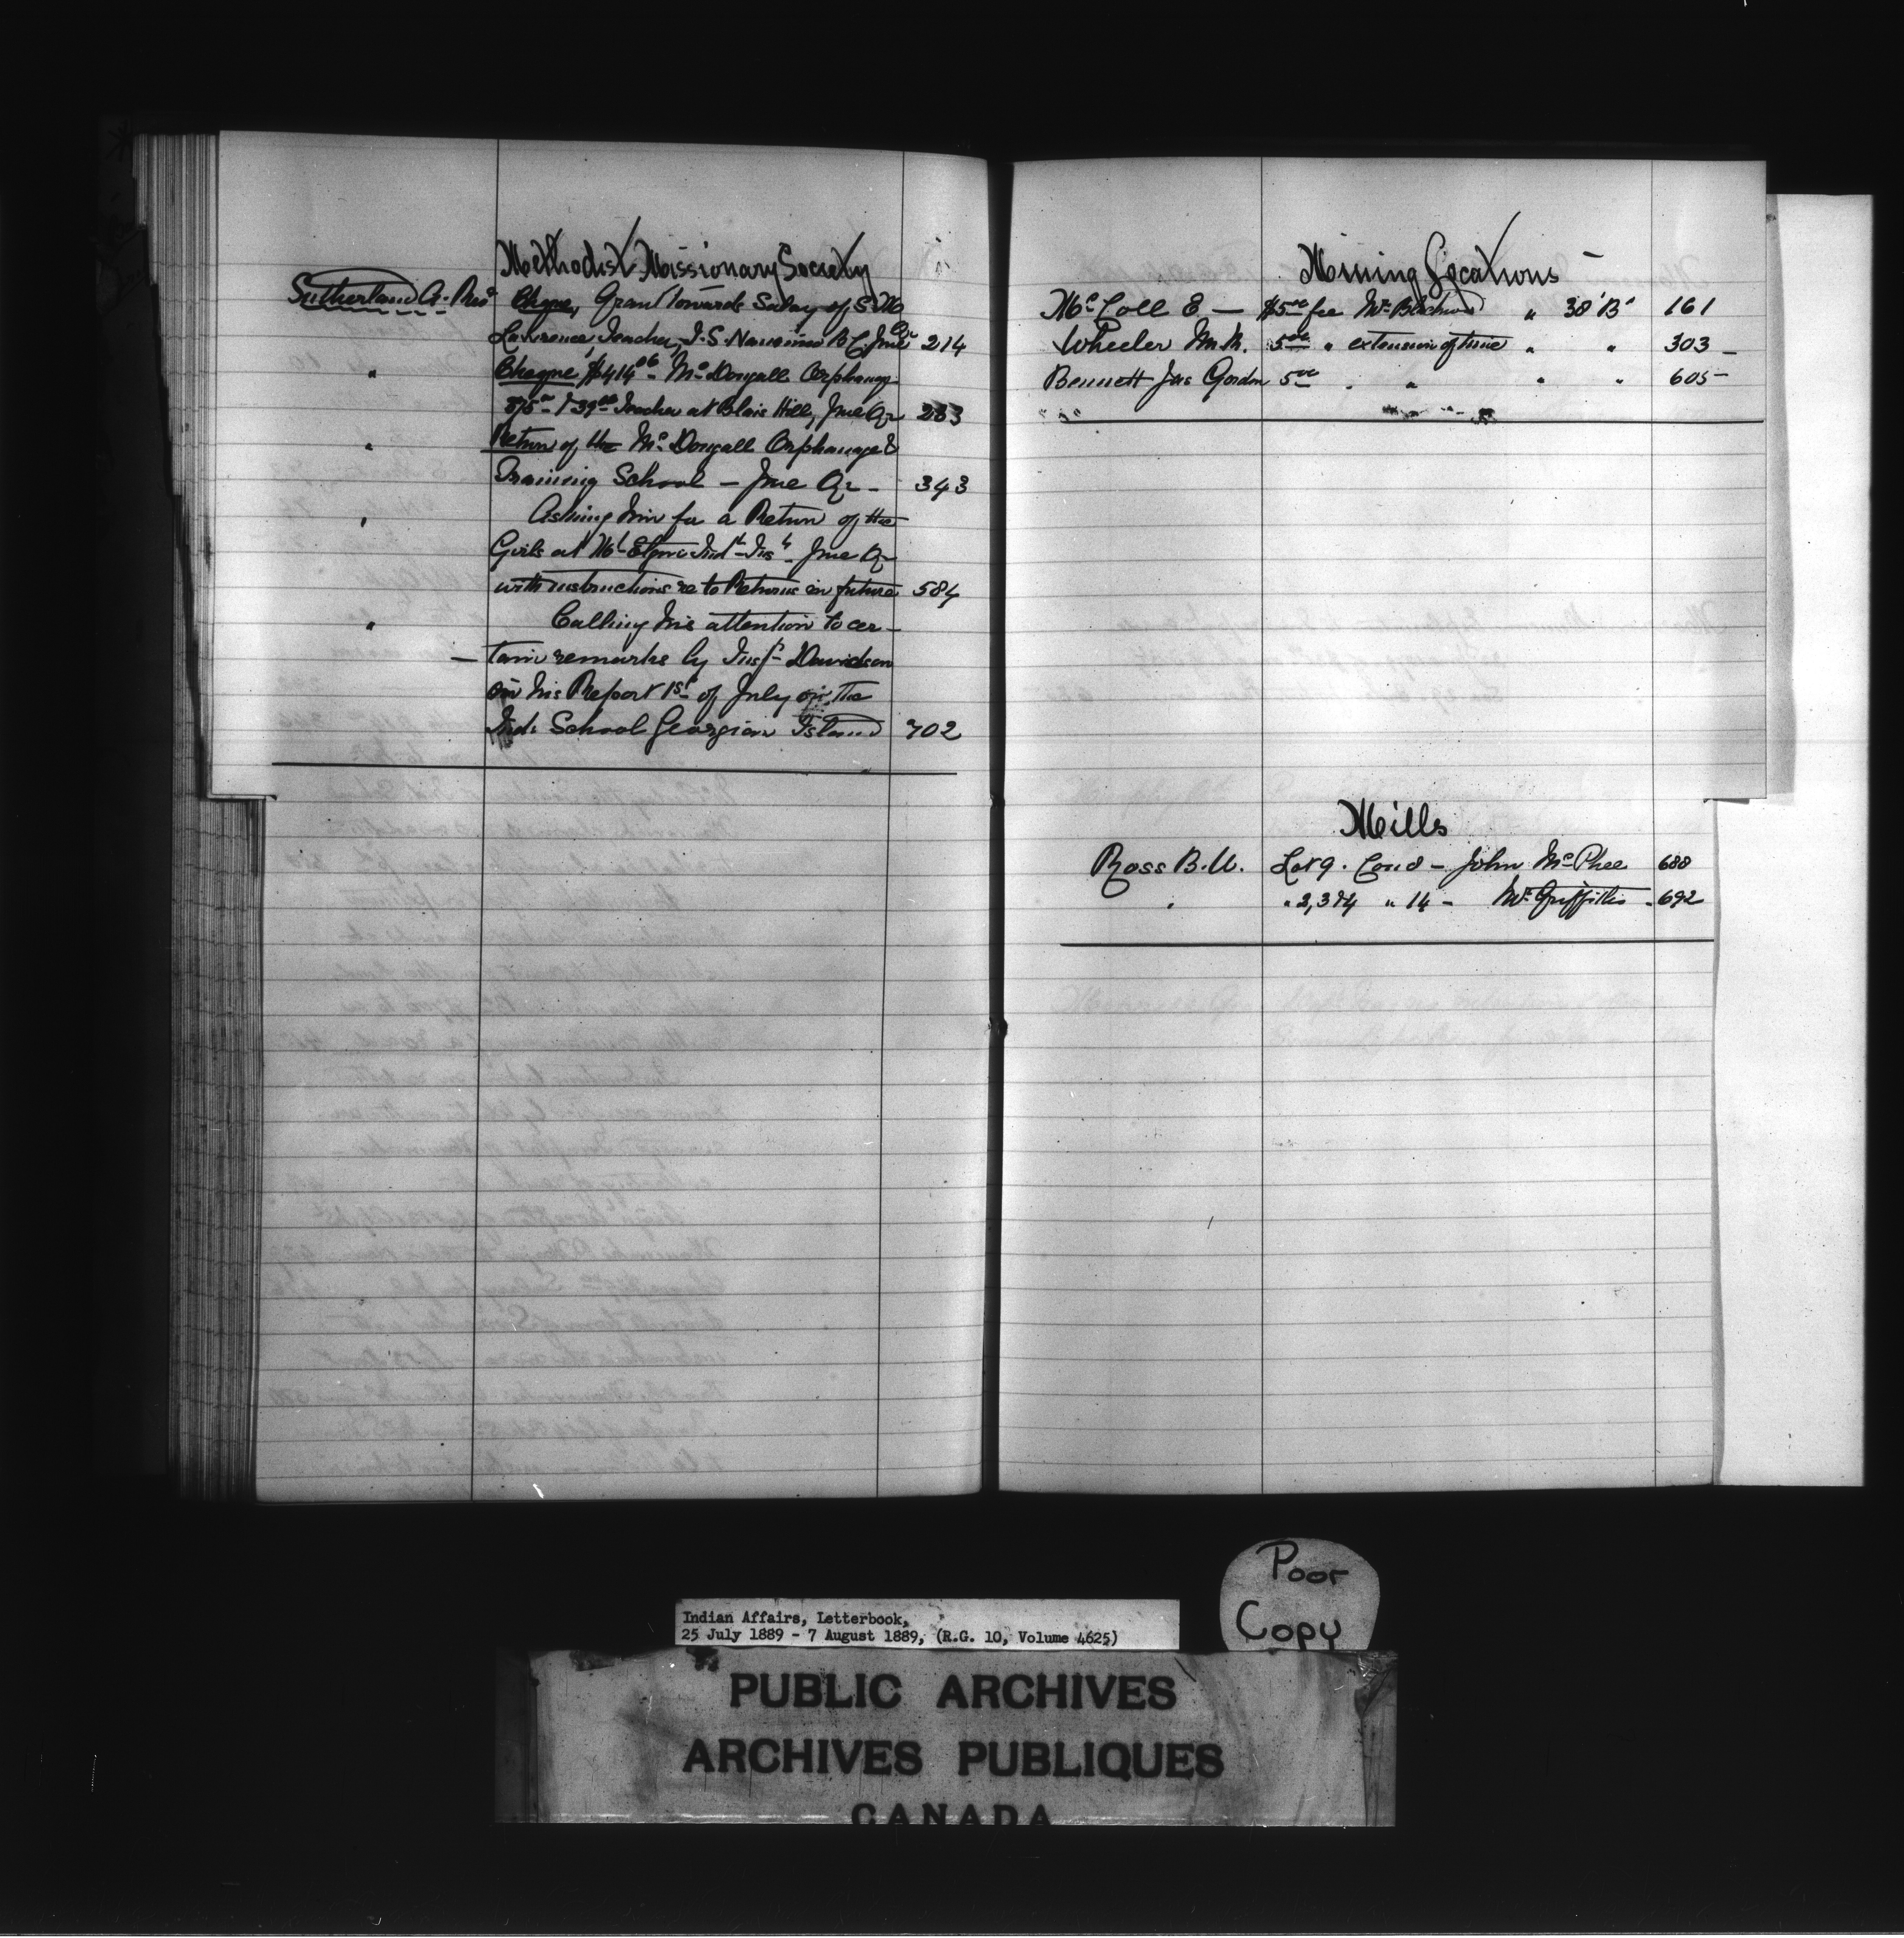 Methodist Missionary Society
Sutherland A. Revd Cheque, Grant towards Salary of, S. M.
Lawrence, Teacher, I. S. Nanaimo B.C. June Qr 214
" Cheque $414.06 Mc Dougall Orphanage
375.00 & 39.06 Teacher at Blair Hill, June Qr 283
" Return of the Mc Dougall Orphanage &
Training School — June Qr - 343
" Asking him for a Return of the
Girls at Mt Elgin Indl Inst. June Qr
with instructions re to Returns in future 584
" Calling his attention to cer-
— tain remarks by Inspr Davidson
in his Report 1st of July on the
Ind: School Georgian Island 702
Mining Locations
Mc Coll E. — $5.00 fee Mr " 38 'B' 161
Wheeler 5.00 " extension of time " " 303 -
Bennett Jas Gordon 5.00 . " " " 605 -
Mills
Ross B. W. Lot 9. Con 8 - John McPhee 688
" " 14 - Mr Griffiths - 692
Poor
Copy
Indian Affairs, Letterbook,
25 July 1889 - 7 August 1889, (R.G. 10, Volume 4625)
PUBLIC ARCHIVES
ARCHIVES PUBLIQUES
CANADA